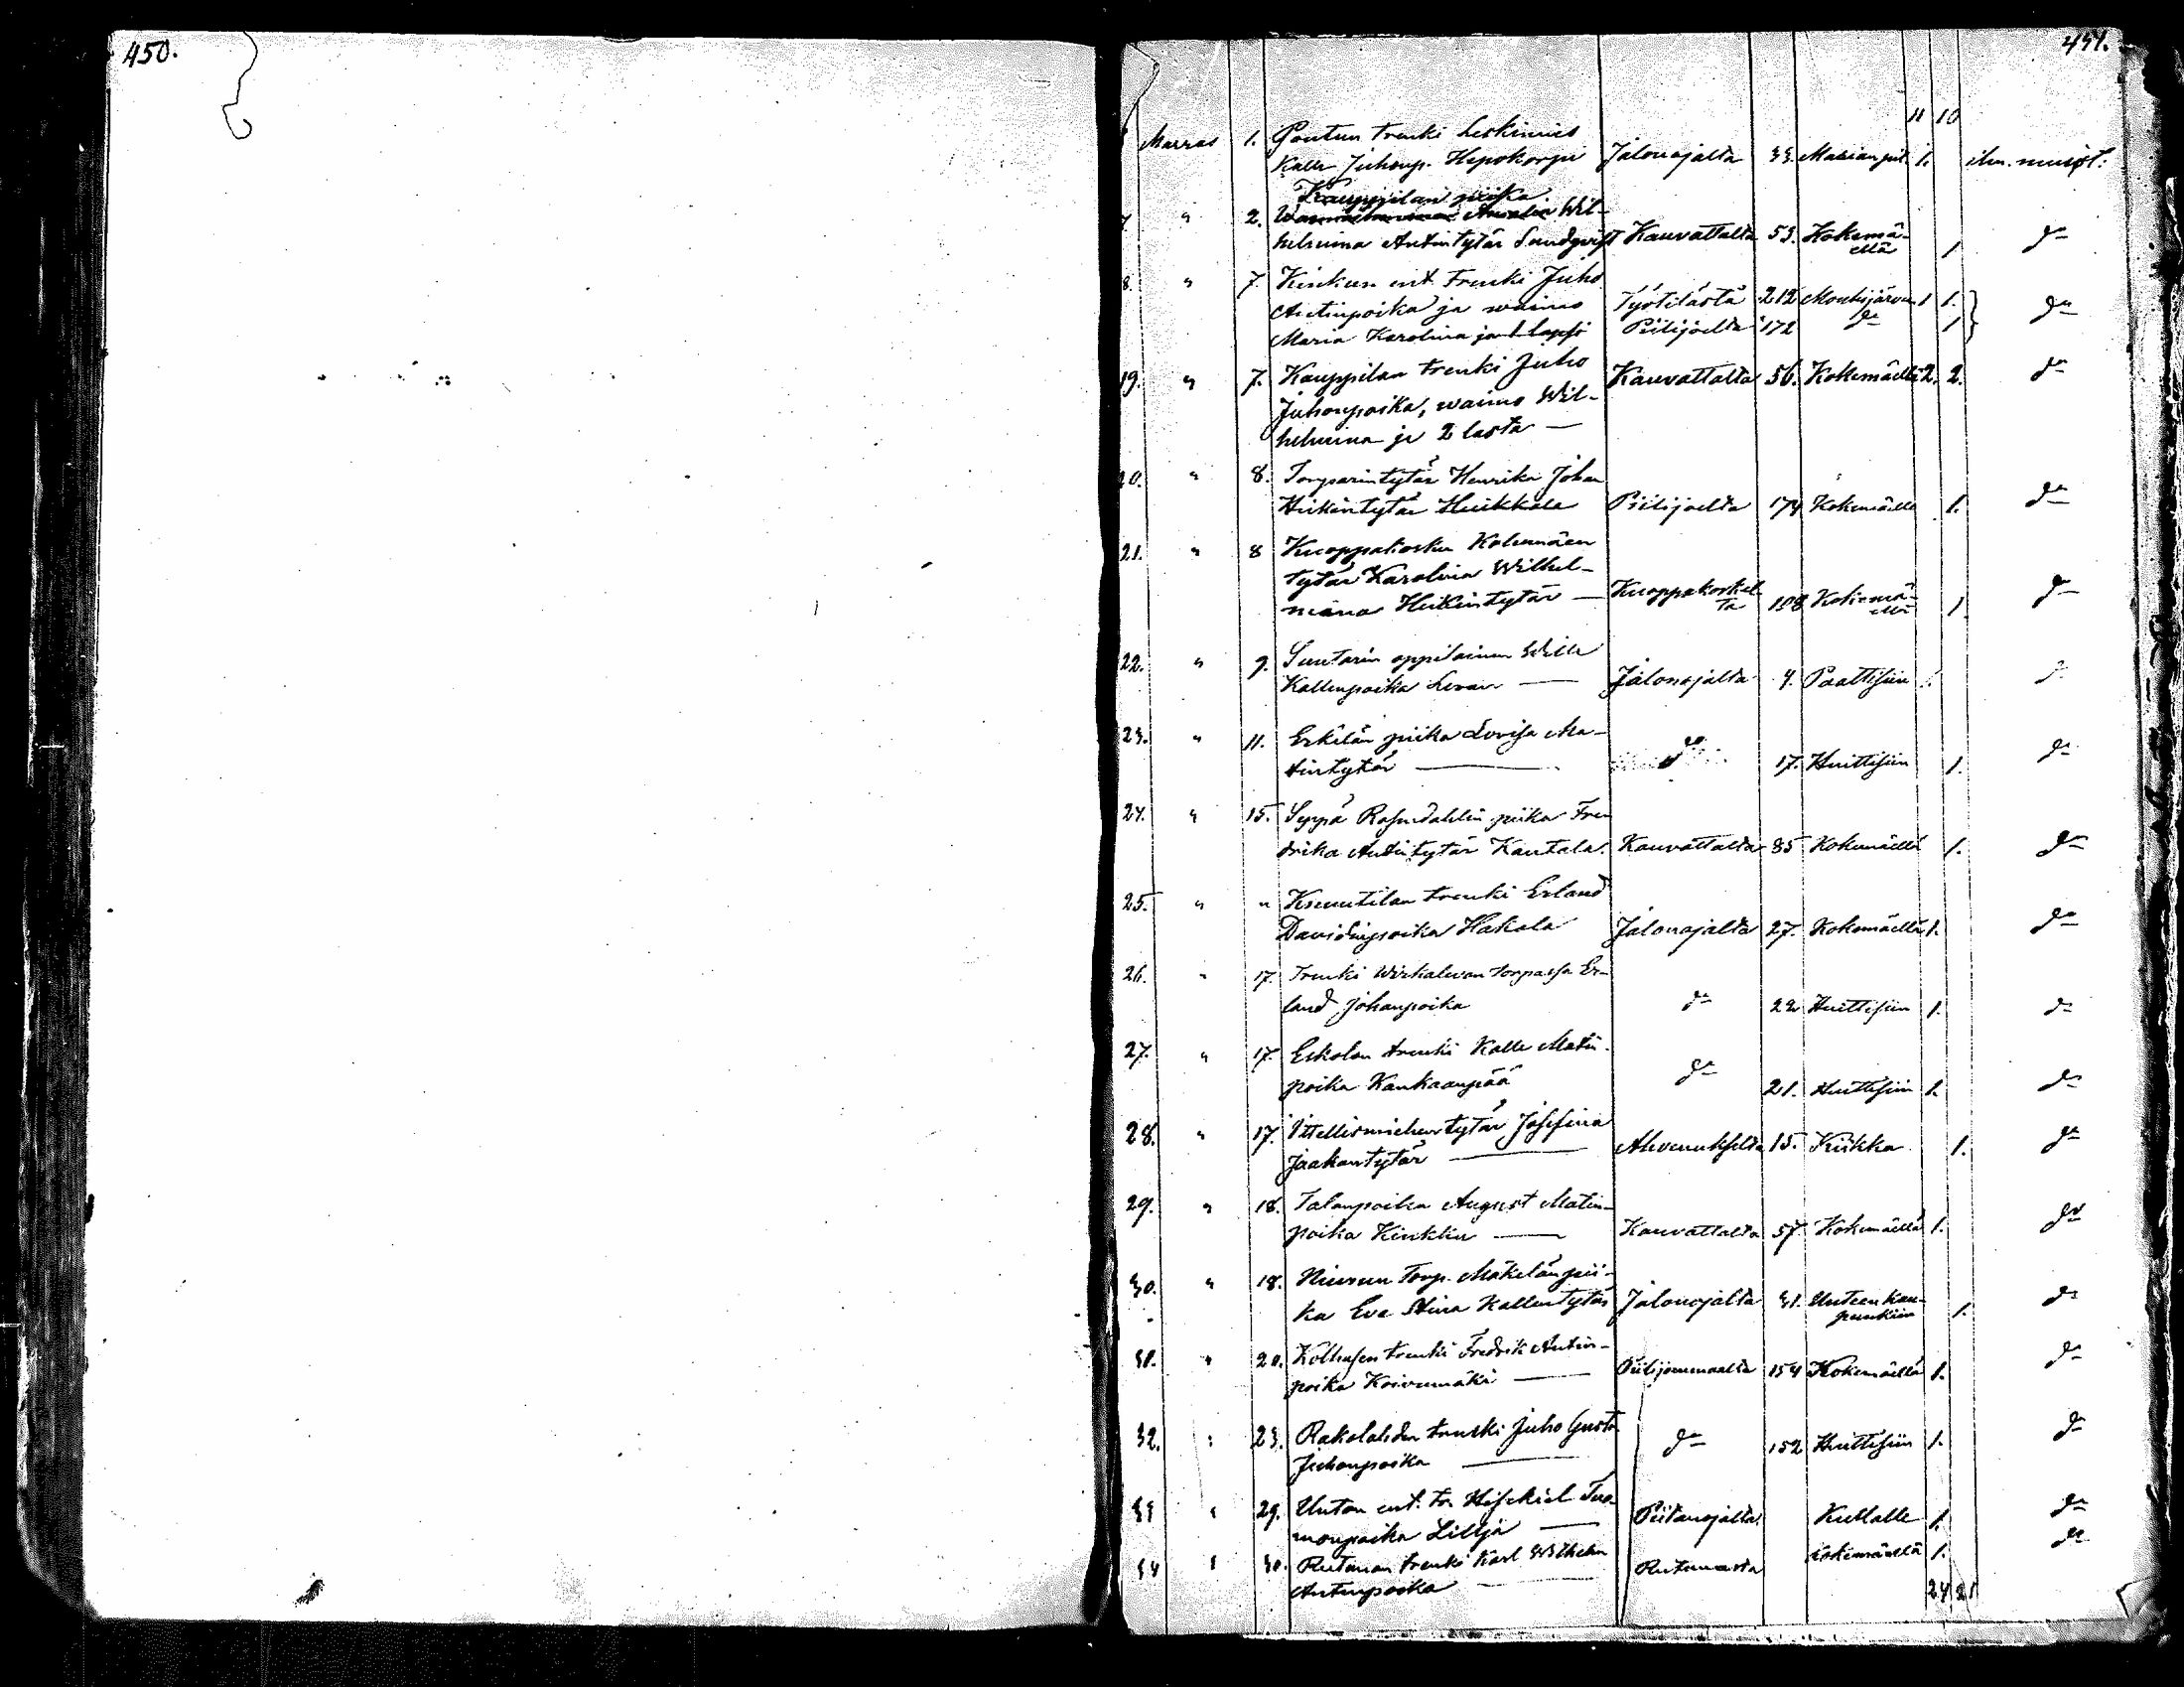 450.
451.
11 10
Marras 1. Pontun trenki Leskimies
Kalle Juhonp. Hepokorpi Jalonojalta 33. Marian pit. 1. ilm. muist.
Kauppilan piika
7. " 2. Amalia Wil-
helmina Antintytär Sundqvist Kauvattalta 53. Kokemä-
ellä 1 do
8. " 7. Kinkun ent. trenki Juho
Antinpoika ja waimo Työtilästä 212 Mouhijärven 1 1. do
Maria Karolina ja 1 lapsi Piilijoelta 172 do 1
19. " 7. Kauppilan trenki Juho Kauvattalta 56. Kokemäellä 2. 2. do
Juhonpoika, waimo Wil-
helmina ja 2 lasta —
20. " 8. Torparintytär Henrika Johan
Heikintytär Heikkala Piilijoelta 174 Kokemäellä 1. do
21. " 8 Kuoppakosken
tytär Karolina Wilhel-
miina Heikintytär — Kuoppakoskel-
ta 108 Kokemä-
ellä 1. do
22. " 9. Suutarin oppilainen Wille
Kallenpoika — Jalonojalta 4. Paattisiin
23. " 11. Erkilän piika Lovisa Ma-
tintytär — do 17. Huittisiin 1. do
24. " 15. Seppä Rosendahlin piika Fre
drika Antintytär Kantala. Kauvattalta 85 Kokemäellä 1. do
25. " " Knuutilan trenki Erland
Davidinpoika Hakala Jalonojalta 27. Kokemäellä 1. do
26. " 17. Trenki torpassa Er-
land Johanpoika do 22 Huittisiin 1. do
27. " 17. Eskolan trenki Kalle Matin-
poika Kankaanpää do 21. Huittisiin 1. do
28. " 17. Itellismiehentytär Josefina
Jaakontytär — 15. Kiikka 1. do
29. " 18. Talonpoika August Matin-
poika Kinkku — Kauvattalta 57. Kokemäellä 1. do
30. " 18. Torp. Mäkelän pii-
ka Eva Stina Kallentytär Jalonojalta 31. Uuteen kau-
punkiin 1. do
31. " 20. trenki Fredrik Antin-
poika Koivumäki — Piilijoenmaalta 154 Kokemäellä 1. do
32. " 23. Rakolahden trenki Juho Gusta
Juhonpoika — do 152 Huittisiin 1. do
33 " 29. Unton ent. tr. Hisekiel Tuo-
monpoika Lillja — Piitanojalta Kullalle 1. do
34 " 30. Rutanan trenki Karl Wilhelm
Antinpoika — Rutanasta Kokemäellä 1. do
24 21